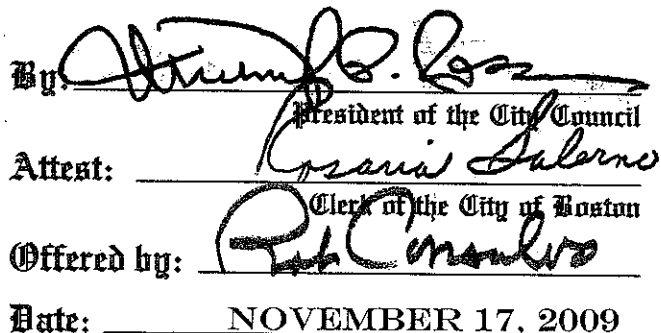 By:
President of the City Council
Attest: Rosaria Salerno
Clerk of the City of Boston
Offered by: Rob Consalvo
Date: NOVEMBER 17, 2009